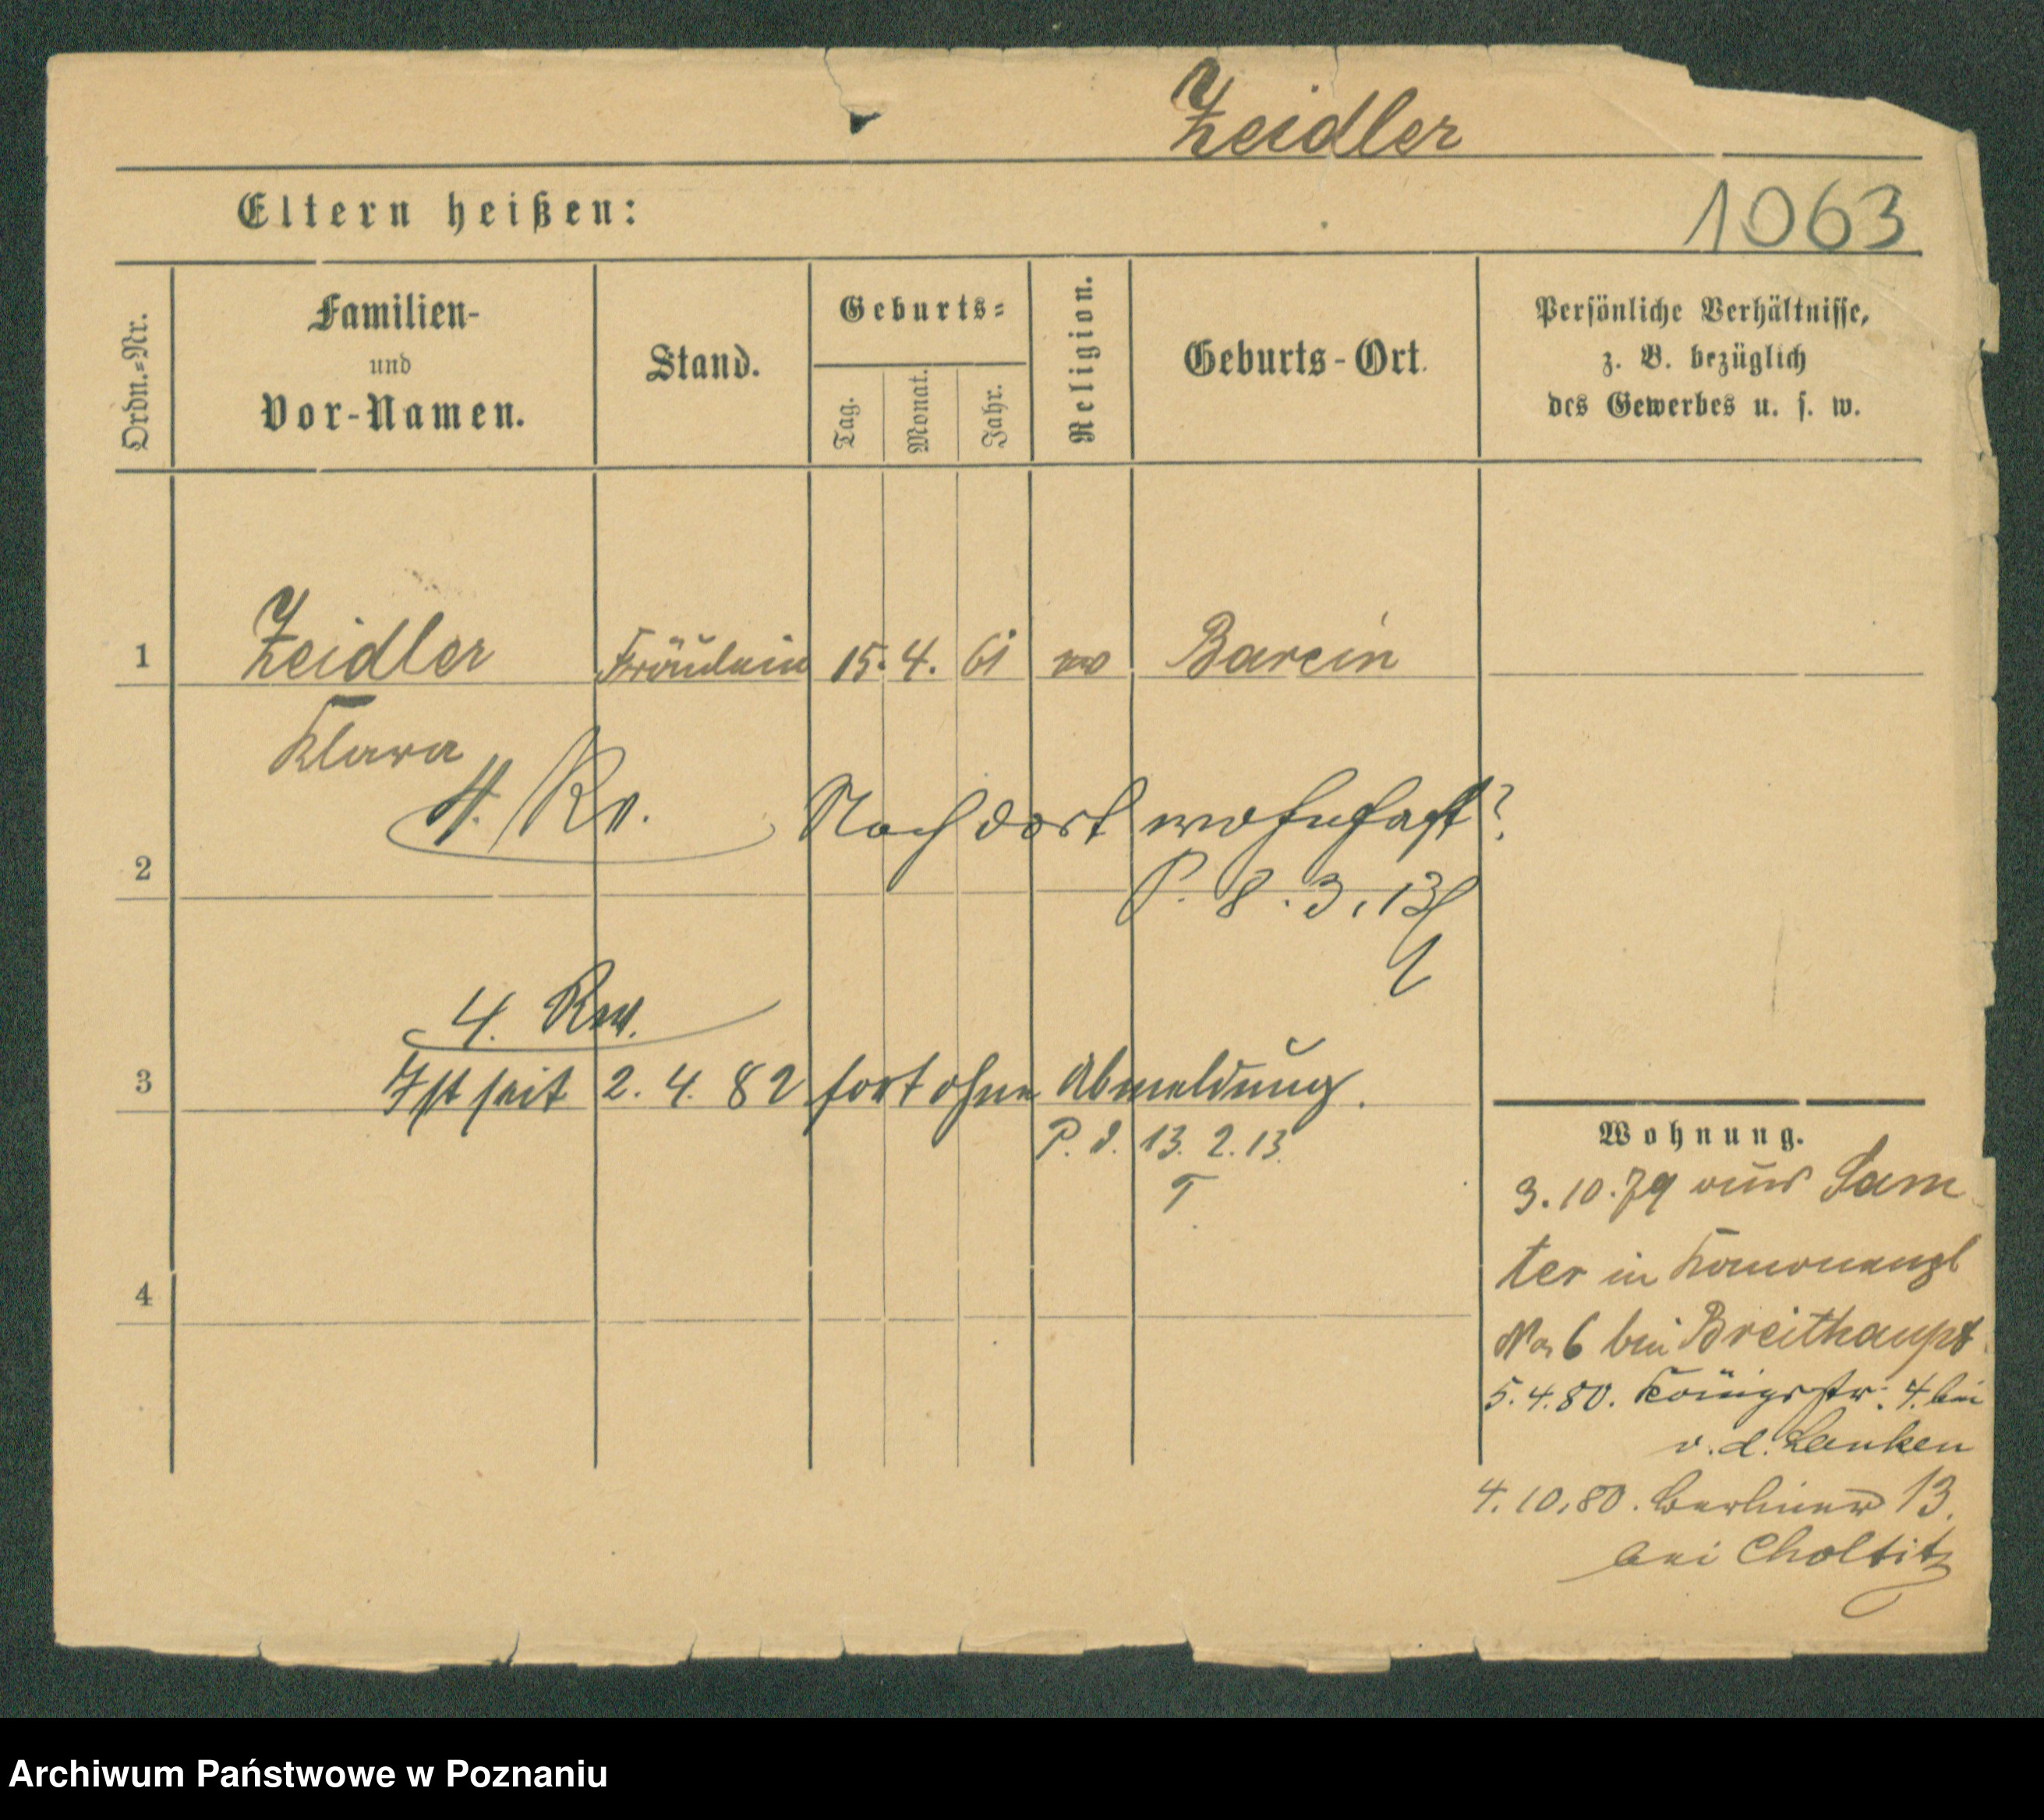 Zeidler
Eltern heißen:
1063
Ordn.=Nr.
Familien-
und
Vor-Namen.
Stand.
Geburts=
Tag.
Monat.
Jahr.
Religion.
Geburts-Ort.
Persönliche Verhältnisse,
z. B. bezüglich
des Gewerbes u. s. w.
1 Zeidler Fräulein 15. 4. 61 Barcin
Klara
4. Rv. Noch dort wohnhaft?
2
P. 8. 3. 13
4. Rev.
3 Ist seit 2. 4. 82 fort ohne Abmeldung.
P. d. 13. 2. 13.
T
4
Wohnung.
3.10.79 aus Sam
ter in
No 6 bei Breithaupt
5.4.80. Königsstr. 4. bei
v. d. Lanken
4.10.80. Berliner 13.
bei Choltitz
Archiwum Państwowe w Poznaniu